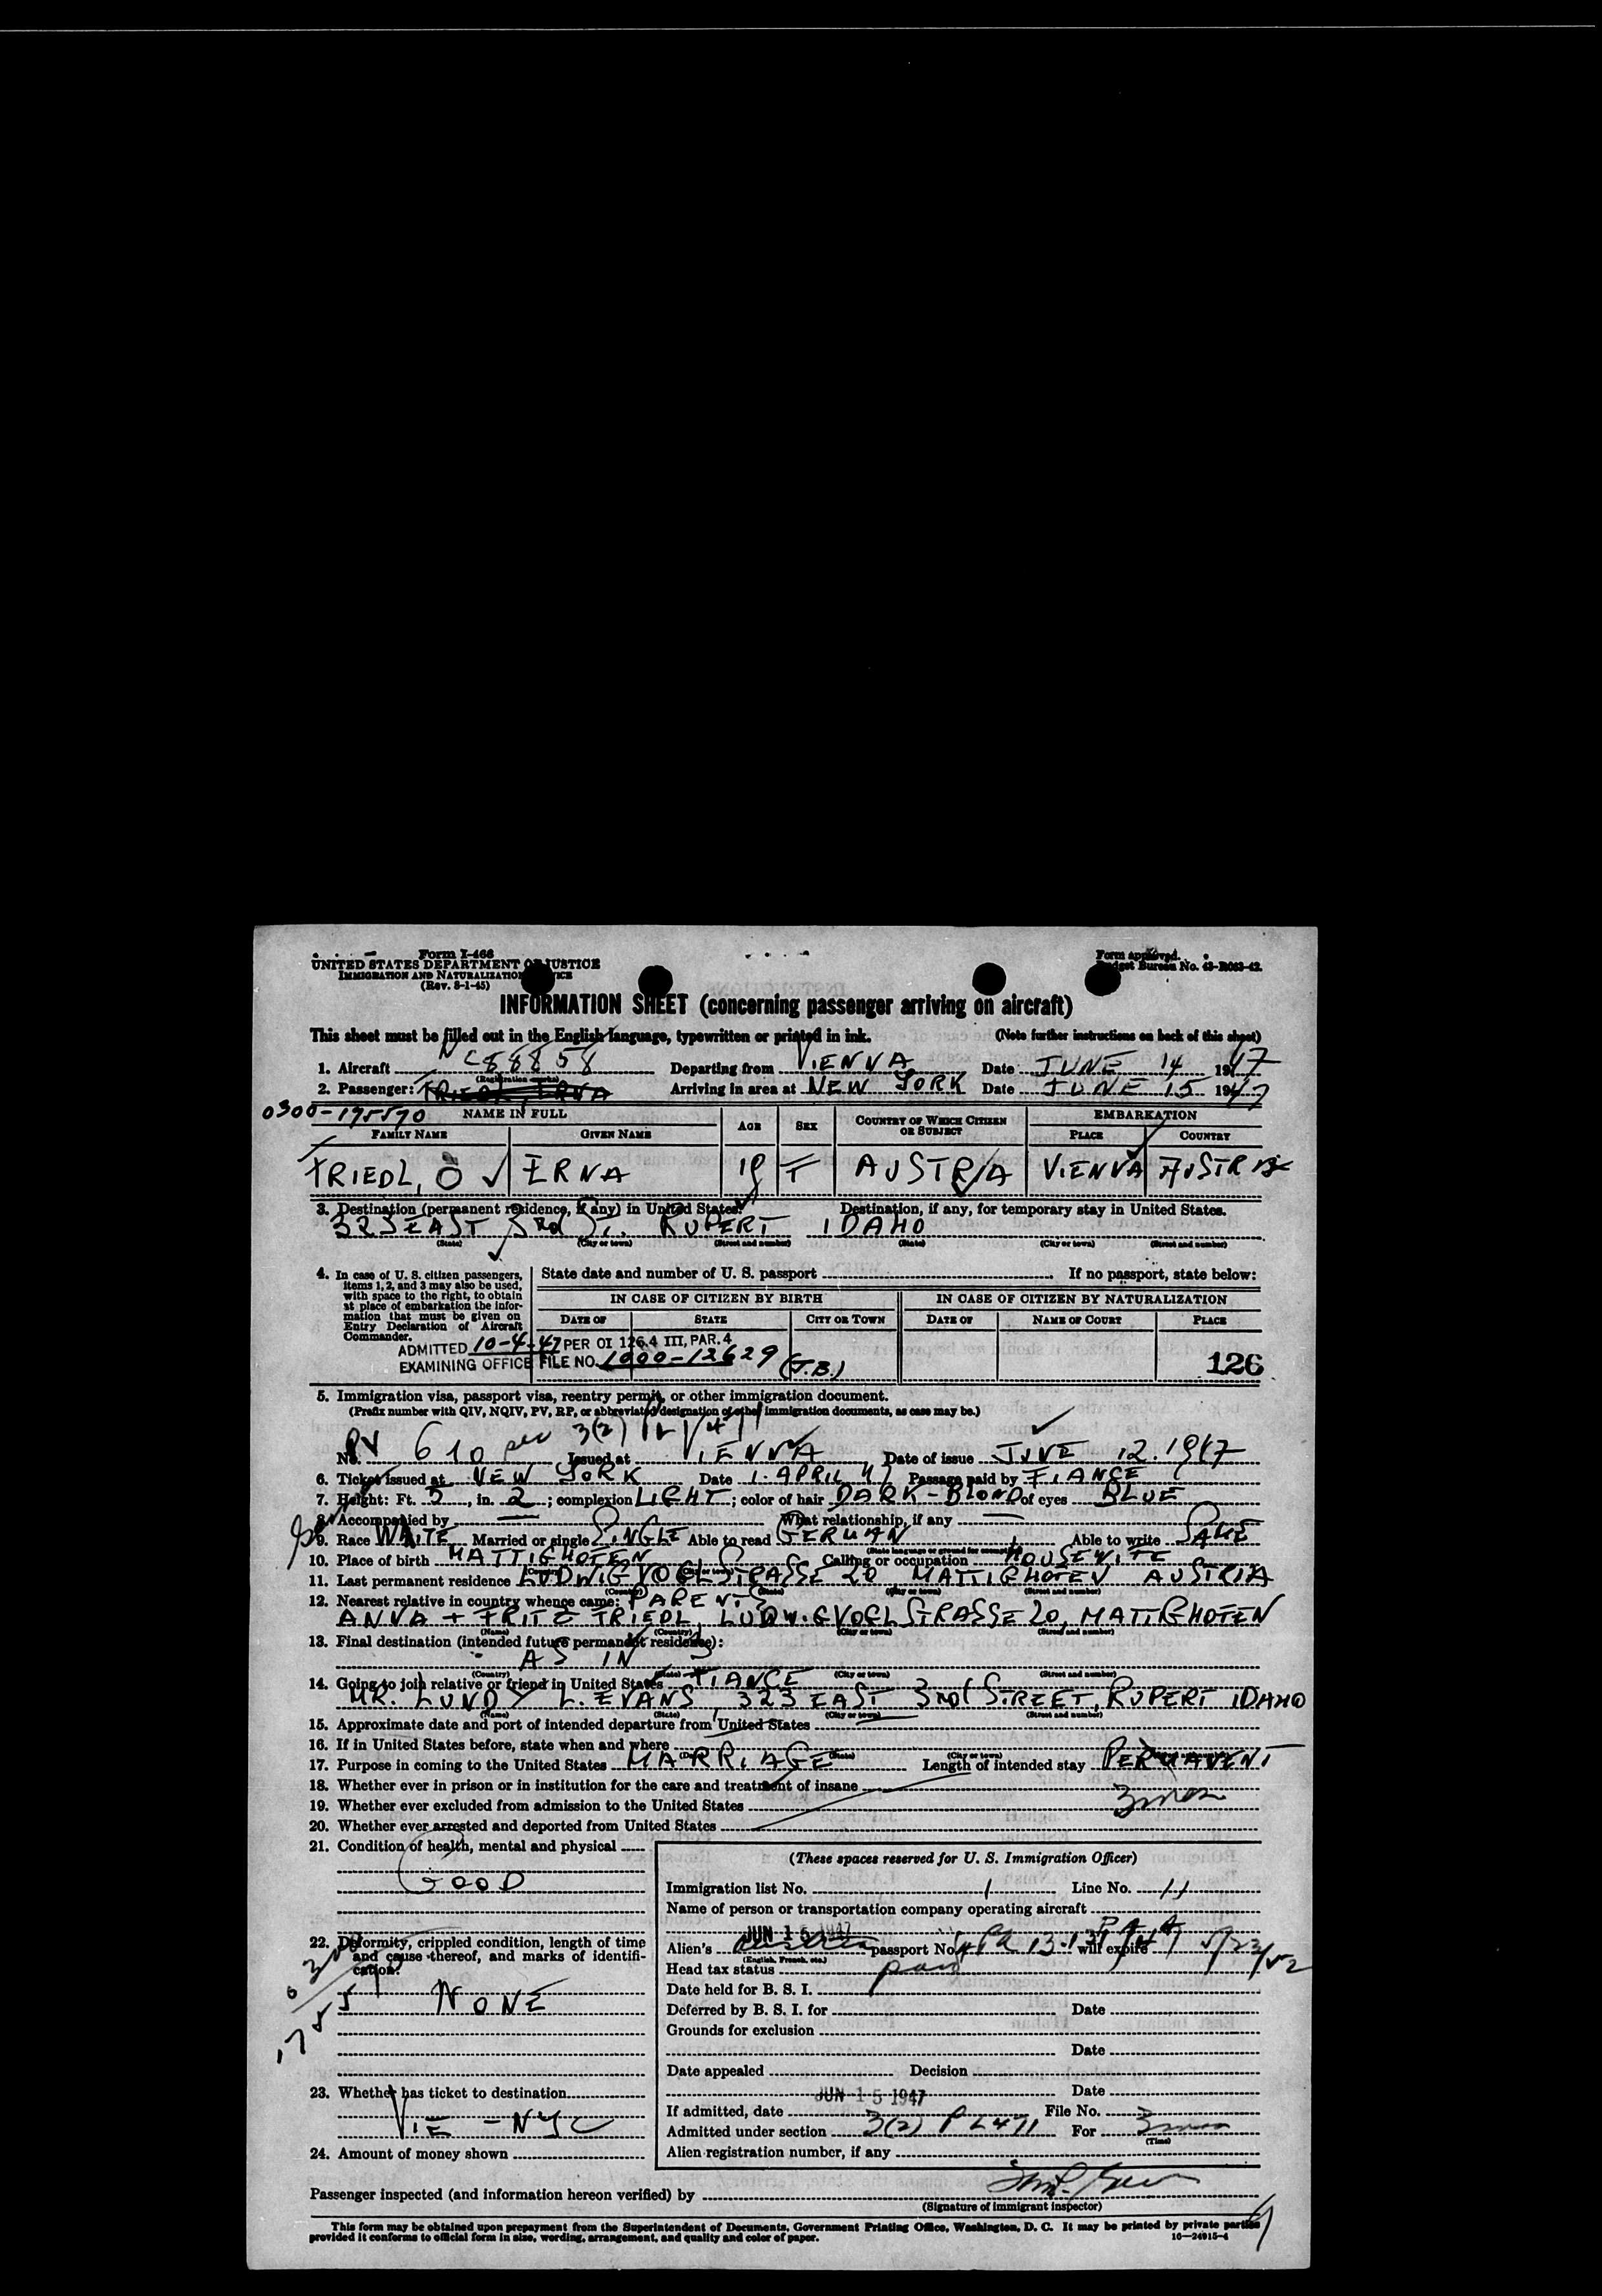 Form I-466
UNITED STATES DEPARTMENT OF JUSTICE
IMMIGRATION AND NATURALIZATION SERVICE
(Rev. 8-1-45)
Form approved.
Budget Bureau No. 43-R063-42.
INFORMATION SHEET (concerning passenger arriving on aircraft)
This sheet must be filled out in the English language, typewritten or printed in ink. (Note further instructions on back of this sheet)
1. Aircraft NC88858 Departing from VIENNA Date JUNE 14 1947
(Registration marks)
2. Passenger: FRIEDL, ERNA Arriving in area at NEW YORK Date JUNE 15 1947
0300-195590 NAME IN FULL AGE SEX COUNTRY OF WHICH CITIZEN OR SUBJECT EMBARKATION
FAMILY NAME GIVEN NAME PLACE COUNTRY
FRIEDL, O ERNA 19 F AUSTRIA VIENNA AUSTRIA
3. Destination (permanent residence, if any) in United States. Destination, if any, for temporary stay in United States.
323 EAST 3rd St. RUPERT IDAHO
(State) (City or town) (Street and number) (State) (City or town) (Street and number)
4. In case of U. S. citizen passengers, items 1, 2, and 3 may also be used, with space to the right, to obtain at place of embarkation the information that must be given on Entry Declaration of Aircraft Commander.
State date and number of U. S. passport If no passport, state below:
IN CASE OF CITIZEN BY BIRTH IN CASE OF CITIZEN BY NATURALIZATION
DATE OF STATE CITY OR TOWN DATE OF NAME OF COURT PLACE
ADMITTED 10-4-47 PER OI 126.4 III, PAR. 4
EXAMINING OFFICE FILE NO. 1000-12629 (J.B.)
126
5. Immigration visa, passport visa, reentry permit, or other immigration document.
(Prefix number with QIV, NQIV, PV, RP, or abbreviated designation of other immigration documents, as case may be.)
No. PV 610 sec 3(2) Issued at VIENNA Date of issue JUNE 12. 1947
6. Ticket issued at NEW YORK Date 1. APRIL 47 Passage paid by FIANCE
7. Height: Ft. 5, in. 2; complexion LIGHT; color of hair DARK-BLOND of eyes BLUE
8. Accompanied by — What relationship, if any —
9. Race WHITE Married or single SINGLE Able to read GERMAN Able to write SAME
(State language or ground for exemption)
10. Place of birth MATTIGHOFEN Calling or occupation HOUSEWIFE
(Country) (City or town)
11. Last permanent residence LUDWIG VOGLSTRASSE 20 MATTIGHOFEN AUSTRIA
(Country) (State) (City or town) (Street and number)
12. Nearest relative in country whence came: PARENTS
ANNA + FRITZ FRIEDL LUDWIGVOGLSTRASSE 20, MATTIGHOFEN
(Name) (Country) (City or town) (Street and number)
13. Final destination (intended future permanent residence):
AS IN 3
(Country) (State) (City or town) (Street and number)
14. Going to join relative or friend in United States FIANCE
MR. LUNDY L. EVANS 323 EAST 3rd STREET, RUPERT IDAHO
(Name) (State) (City or town) (Street and number)
15. Approximate date and port of intended departure from United States
16. If in United States before, state when and where
(State) (City or town)
17. Purpose in coming to the United States MARRIAGE Length of intended stay PERMANENT
3 mos
18. Whether ever in prison or in institution for the care and treatment of insane
19. Whether ever excluded from admission to the United States
20. Whether ever arrested and deported from United States
21. Condition of health, mental and physical
GOOD
22. Deformity, crippled condition, length of time and cause thereof, and marks of identification:
NONE
23. Whether has ticket to destination
VIE - NYC
24. Amount of money shown
(These spaces reserved for U. S. Immigration Officer)
Immigration list No. 1 Line No. 11
Name of person or transportation company operating aircraft
PAA
JUN 15 1947
Alien's Austrian passport No. will expire 5/23/52
(English, French, etc.)
Head tax status
Date held for B. S. I.
Deferred by B. S. I. for Date
Grounds for exclusion
Date
Date appealed Decision
Date
JUN 15 1947
If admitted, date File No.
Admitted under section 3(2) PL 471 For 3 mos
(Time)
Alien registration number, if any
Passenger inspected (and information hereon verified) by
(Signature of immigrant inspector)
This form may be obtained upon prepayment from the Superintendent of Documents, Government Printing Office, Washington, D. C. It may be printed by private parties
provided it conforms to official form in size, wording, arrangement, and quality and color of paper. 16—24915-4